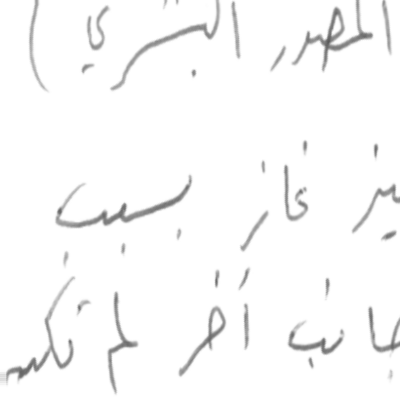 المصدر البشري )
غاز بسبب
جانب آخر لم تكن